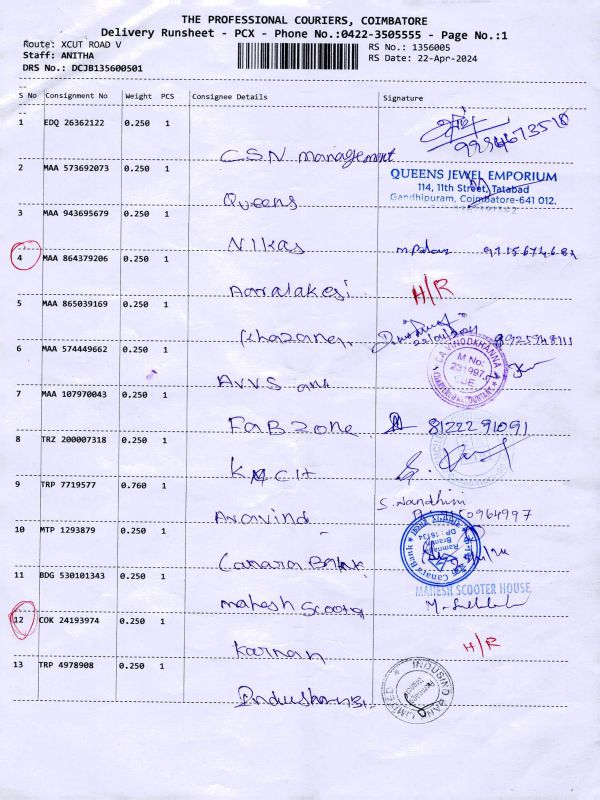 THE PROFESSIONAL COURIERS, COIMBATORE
Delivery Runsheet - PCX - Phone No.:0422-3505555 - Page No.:1
Route: XCUT ROAD V
RS No.: 1356005
Staff: ANITHA
RS Date: 22-Apr-2024
DRS No.: DCJB135600501
S No Consignment No Weight PCS Consignee Details Signature
1 EDQ 26362122 0.250 1
C.S.N management
2 MAA 573692073 0.250 1
QUEENS JEWEL EMPORIUM
114, 11th Street, Tatabad
Gandhipuram, Coimbatore-641 012.
Queens
3 MAA 943695679 0.250 1
Nikas
4 MAA 864379206 0.250 1
H/R
5 MAA 865039169 0.250 1
6 MAA 574449662 0.250 1
CA VINODKHANNA
M No:
CBE
CHARTERED ACCOUNTANT
7 MAA 107970043 0.250 1
Fab Zone 8122291091
8 TRZ 200007318 0.250 1
KMCH
9 TRP 7719577 0.760 1
S. Nandhini
Aravind
10 MTP 1293879 0.250 1
Canara Bank
DP: 16134
Canara Bank
11 BDG 530101343 0.250 1
MAHESH SCOOTER HOUSE
mahesh Scooty
12 COK 24193974 0.250 1
H/R
Karnan
13 TRP 4978908 0.250 1
INDUSIND BANK LIMITED